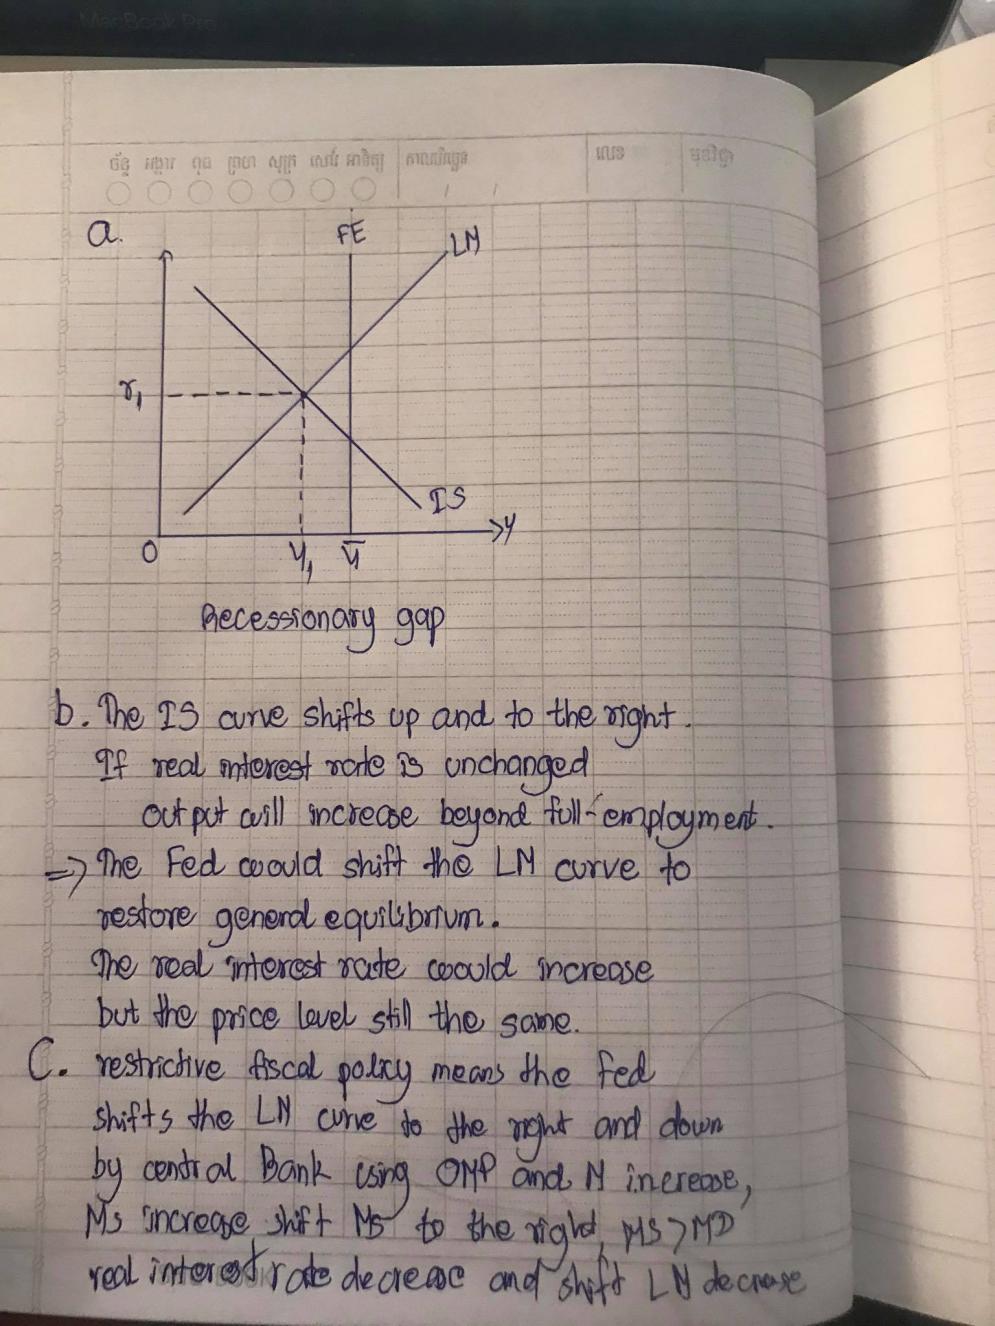 MacBook Pro
ច័ន្ទ អង្គារ ពុធ ព្រហ សុក្រ សៅរ៍ អាទិត្យ កាលបរិច្ឆេទ លេខ
a.
FE
LM
r₁
IS
O Y₁ Y̅ Y
Recessionary gap
b. The IS curve shifts up and to the right.
If real interest rate is unchanged
output will increase beyond full-employment.
=> The Fed would shift the LM curve to
restore general equilibrium.
The real interest rate would increase
but the price level still the same.
C. restrictive fiscal policy means the Fed
shifts the LM curve to the right and down
by central Bank using OMP and M increase,
Ms increase shift Ms to the right, MS>MD
real interest rate decrease and shift LM decrease